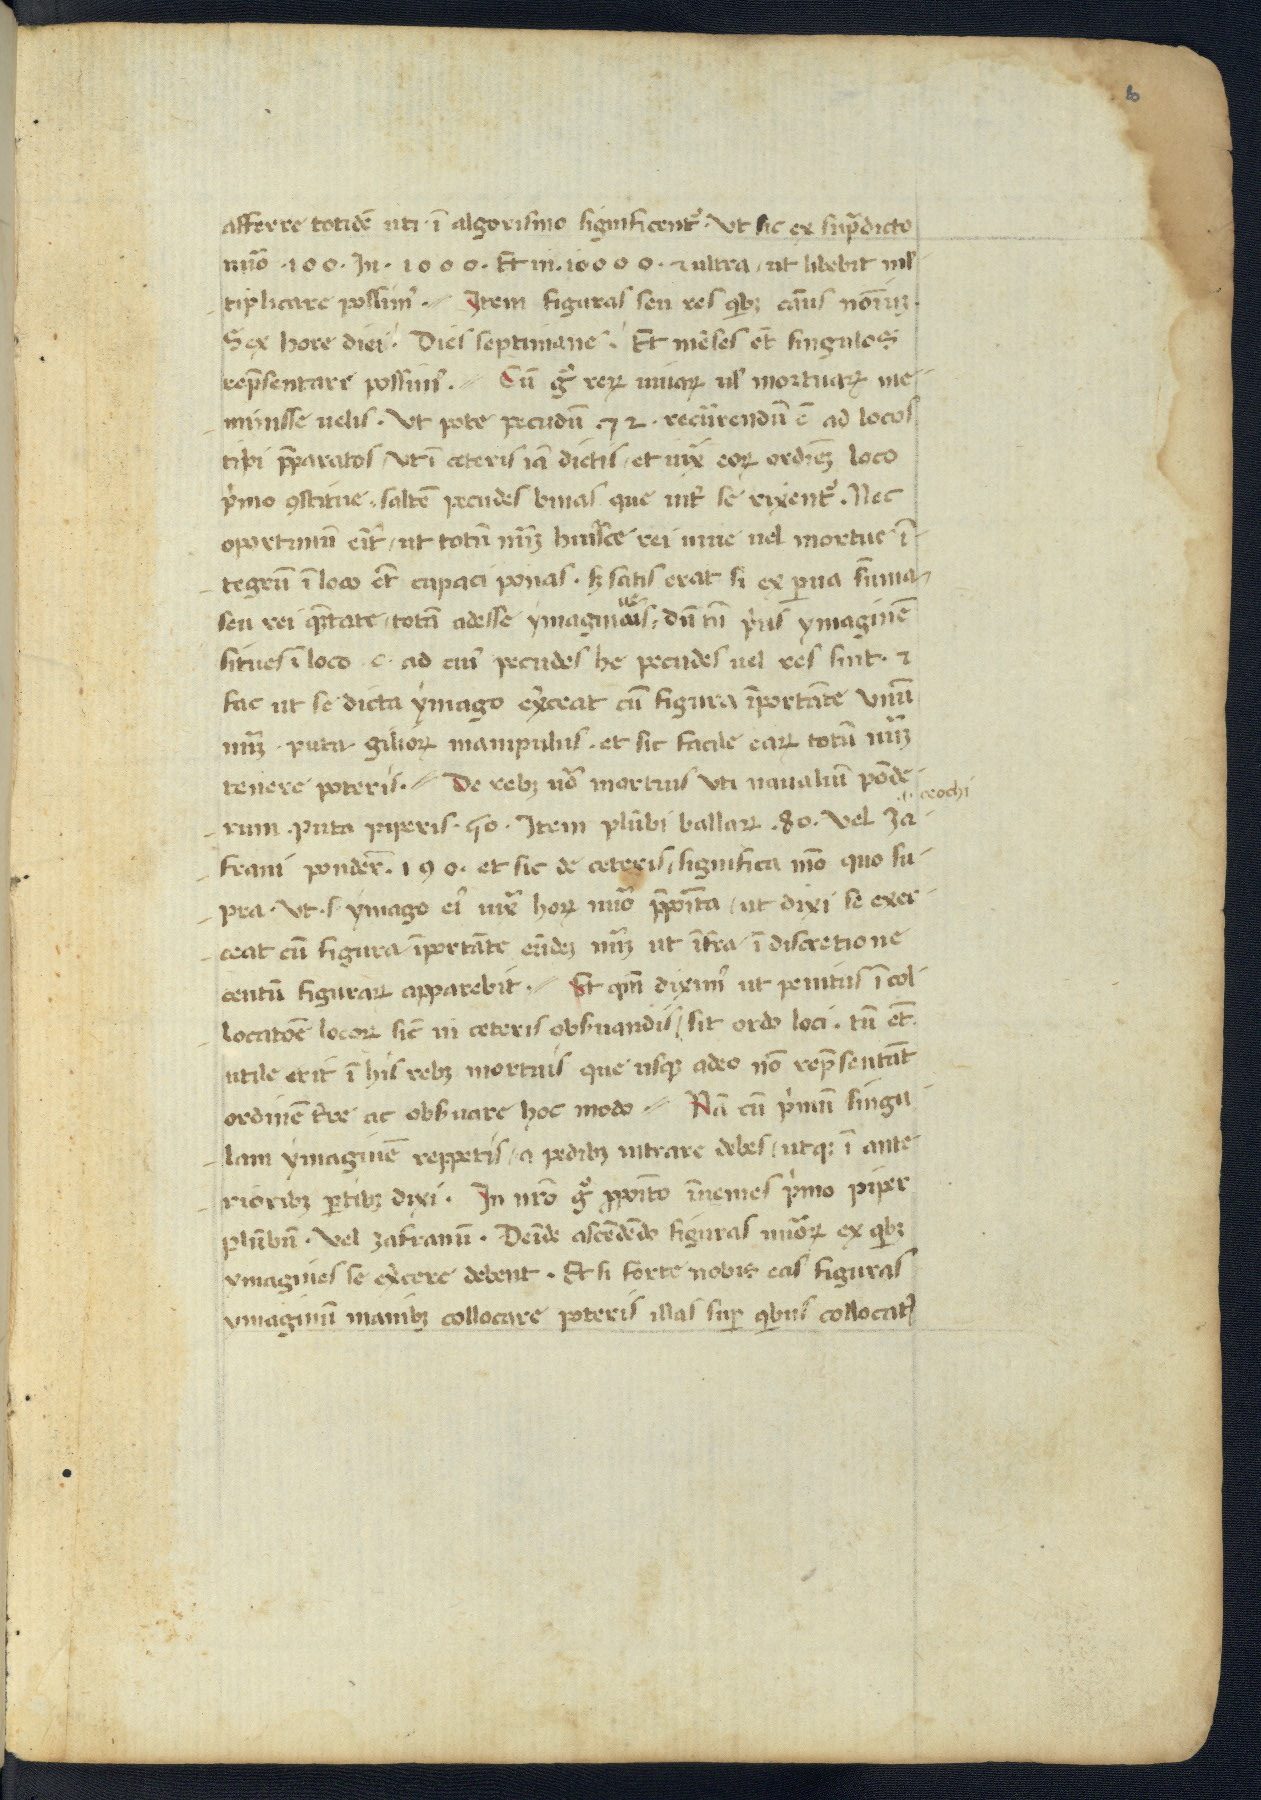 6
afferre totidē uti ī algorismo significent᷑. Vt sic ex sup̄dicto
nūo .100. In .1000. Et in .10000. ⁊ ultra / ut libebit ml̄
tiplicare possim⁹. Item figuras seu res qb; cāus
Sex hore diei. Dies septimane. Et mēses et̄ singulos
rep̄sentare possim⁹. Cū gͦ reꝝ uiuaꝝ ul̄ mortuaꝝ me
minisse uelis. Vt pote pecudū .72. recūrendū ē ad locos
tibi p̄paratos / Vt ī ceteris iā dictis / et iux̄ eoꝝ ordinē loco
p̄mo ꝯstitue. saltē pecudes binas que int̄ se rixent᷑. Nec
oportunū erit / ut totū nūꝫ huiusce rei uiue uel mortue ī
tegrū ī loco et̄ capaci ponas. sꝫ satis erat si ex p̱ua sūma
seu rei qn̄tate / totā adesse ymagineris, dū tn̄ p̄us ymaginē
situes ī loco .c. ad cui⁹ pecudes he pecudes uel res sint. ⁊
fac ut se dicta ymago ex̄ceat cū figura īportāte unū
nūꝫ. puta gilioꝝ manipulus. et sic facile eaꝝ totū nūꝫ
tenere poteris. De rebꝫ u̇o mortuis uti naualiū pōde
ceochi
rum. puta piperis .50. Item plūbi ballaꝝ .80. Vel za
frani ponder̄ .190. et sic de ceteris / significa mō quo su
pra. Vt .s. ymago ei⁹ iux̄ hoꝝ nūo p̄poīta / ut dixi se exer
ceat cū figura īportāte eūdeꝫ nūꝫ ut īfra ī discretione
centū figuraꝝ apparebit. Et qm̄ dixim⁹ ut penitus ī col
locatōe locoꝝ sic̄ in ceteris obs̄uandis / sit ordo loci. tū et̄
utile erit ī his rebꝫ mortuis que usqꝫ adeo nō rep̄sentāt
ordinē t̄re ac obs̄uare hoc modo. Nā cū p̄mū singu
lam ymaginē repperis / a pedibꝫ intrare debes / utqꝫ ī ante
rioribꝫ ꝑtibꝫ dixi. In nr̄o gͦ ꝓpoīto īuenies p̄mo piper
plūbū. Vel zafranū. Deīde ascēdēdo figuras nūoꝝ ex qbꝫ
ymagines se ex̄cere debent. Et si forte nobis eas figuras
ymaginū manibꝫ collocare poteris illas suꝑ qbus collocat᷑